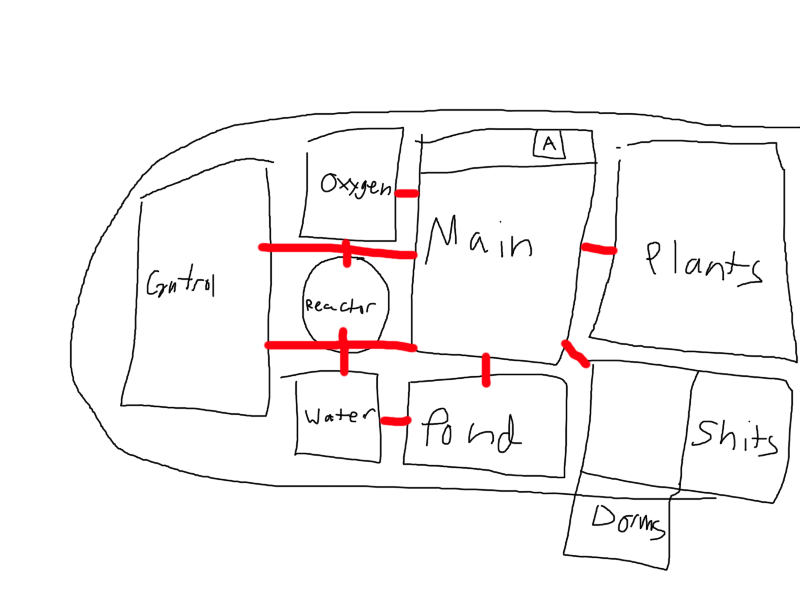 A
Oxygen
Main
Plants
Control
Reactor
Water
Pond
Shits
Dorms